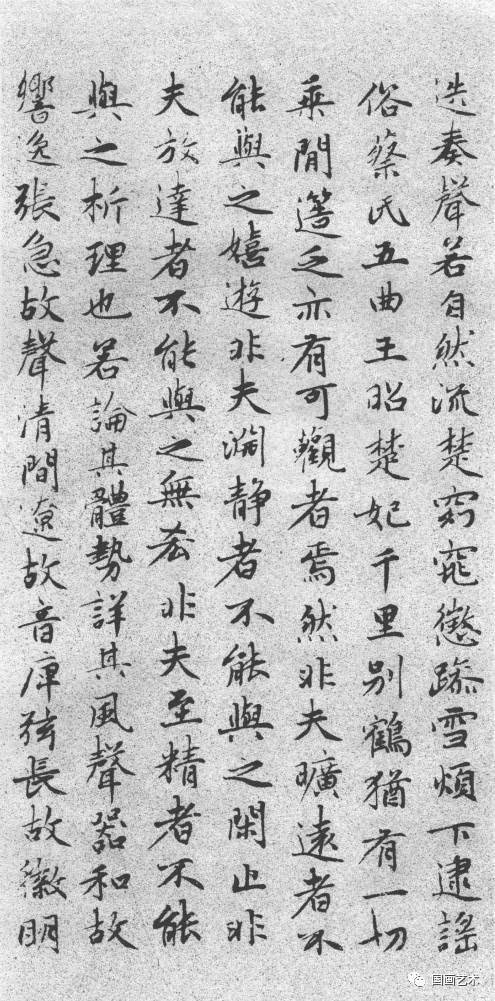 迭奏聲若自然流楚窈窕懲躁雪煩下逮謠
俗蔡氏五曲王昭楚妃千里別鶴猶有一切
乗閒簉乏亦有可觀者焉然非夫曠遠者不
能與之嬉遊非夫淵静者不能與之閑止非
夫放達者不能與之無𠫤非夫至精者不能
與之析理也若論其體勢詳其風聲器和故
響逸張急故聲清閒遼故音庳弦長故徽明
国画艺术